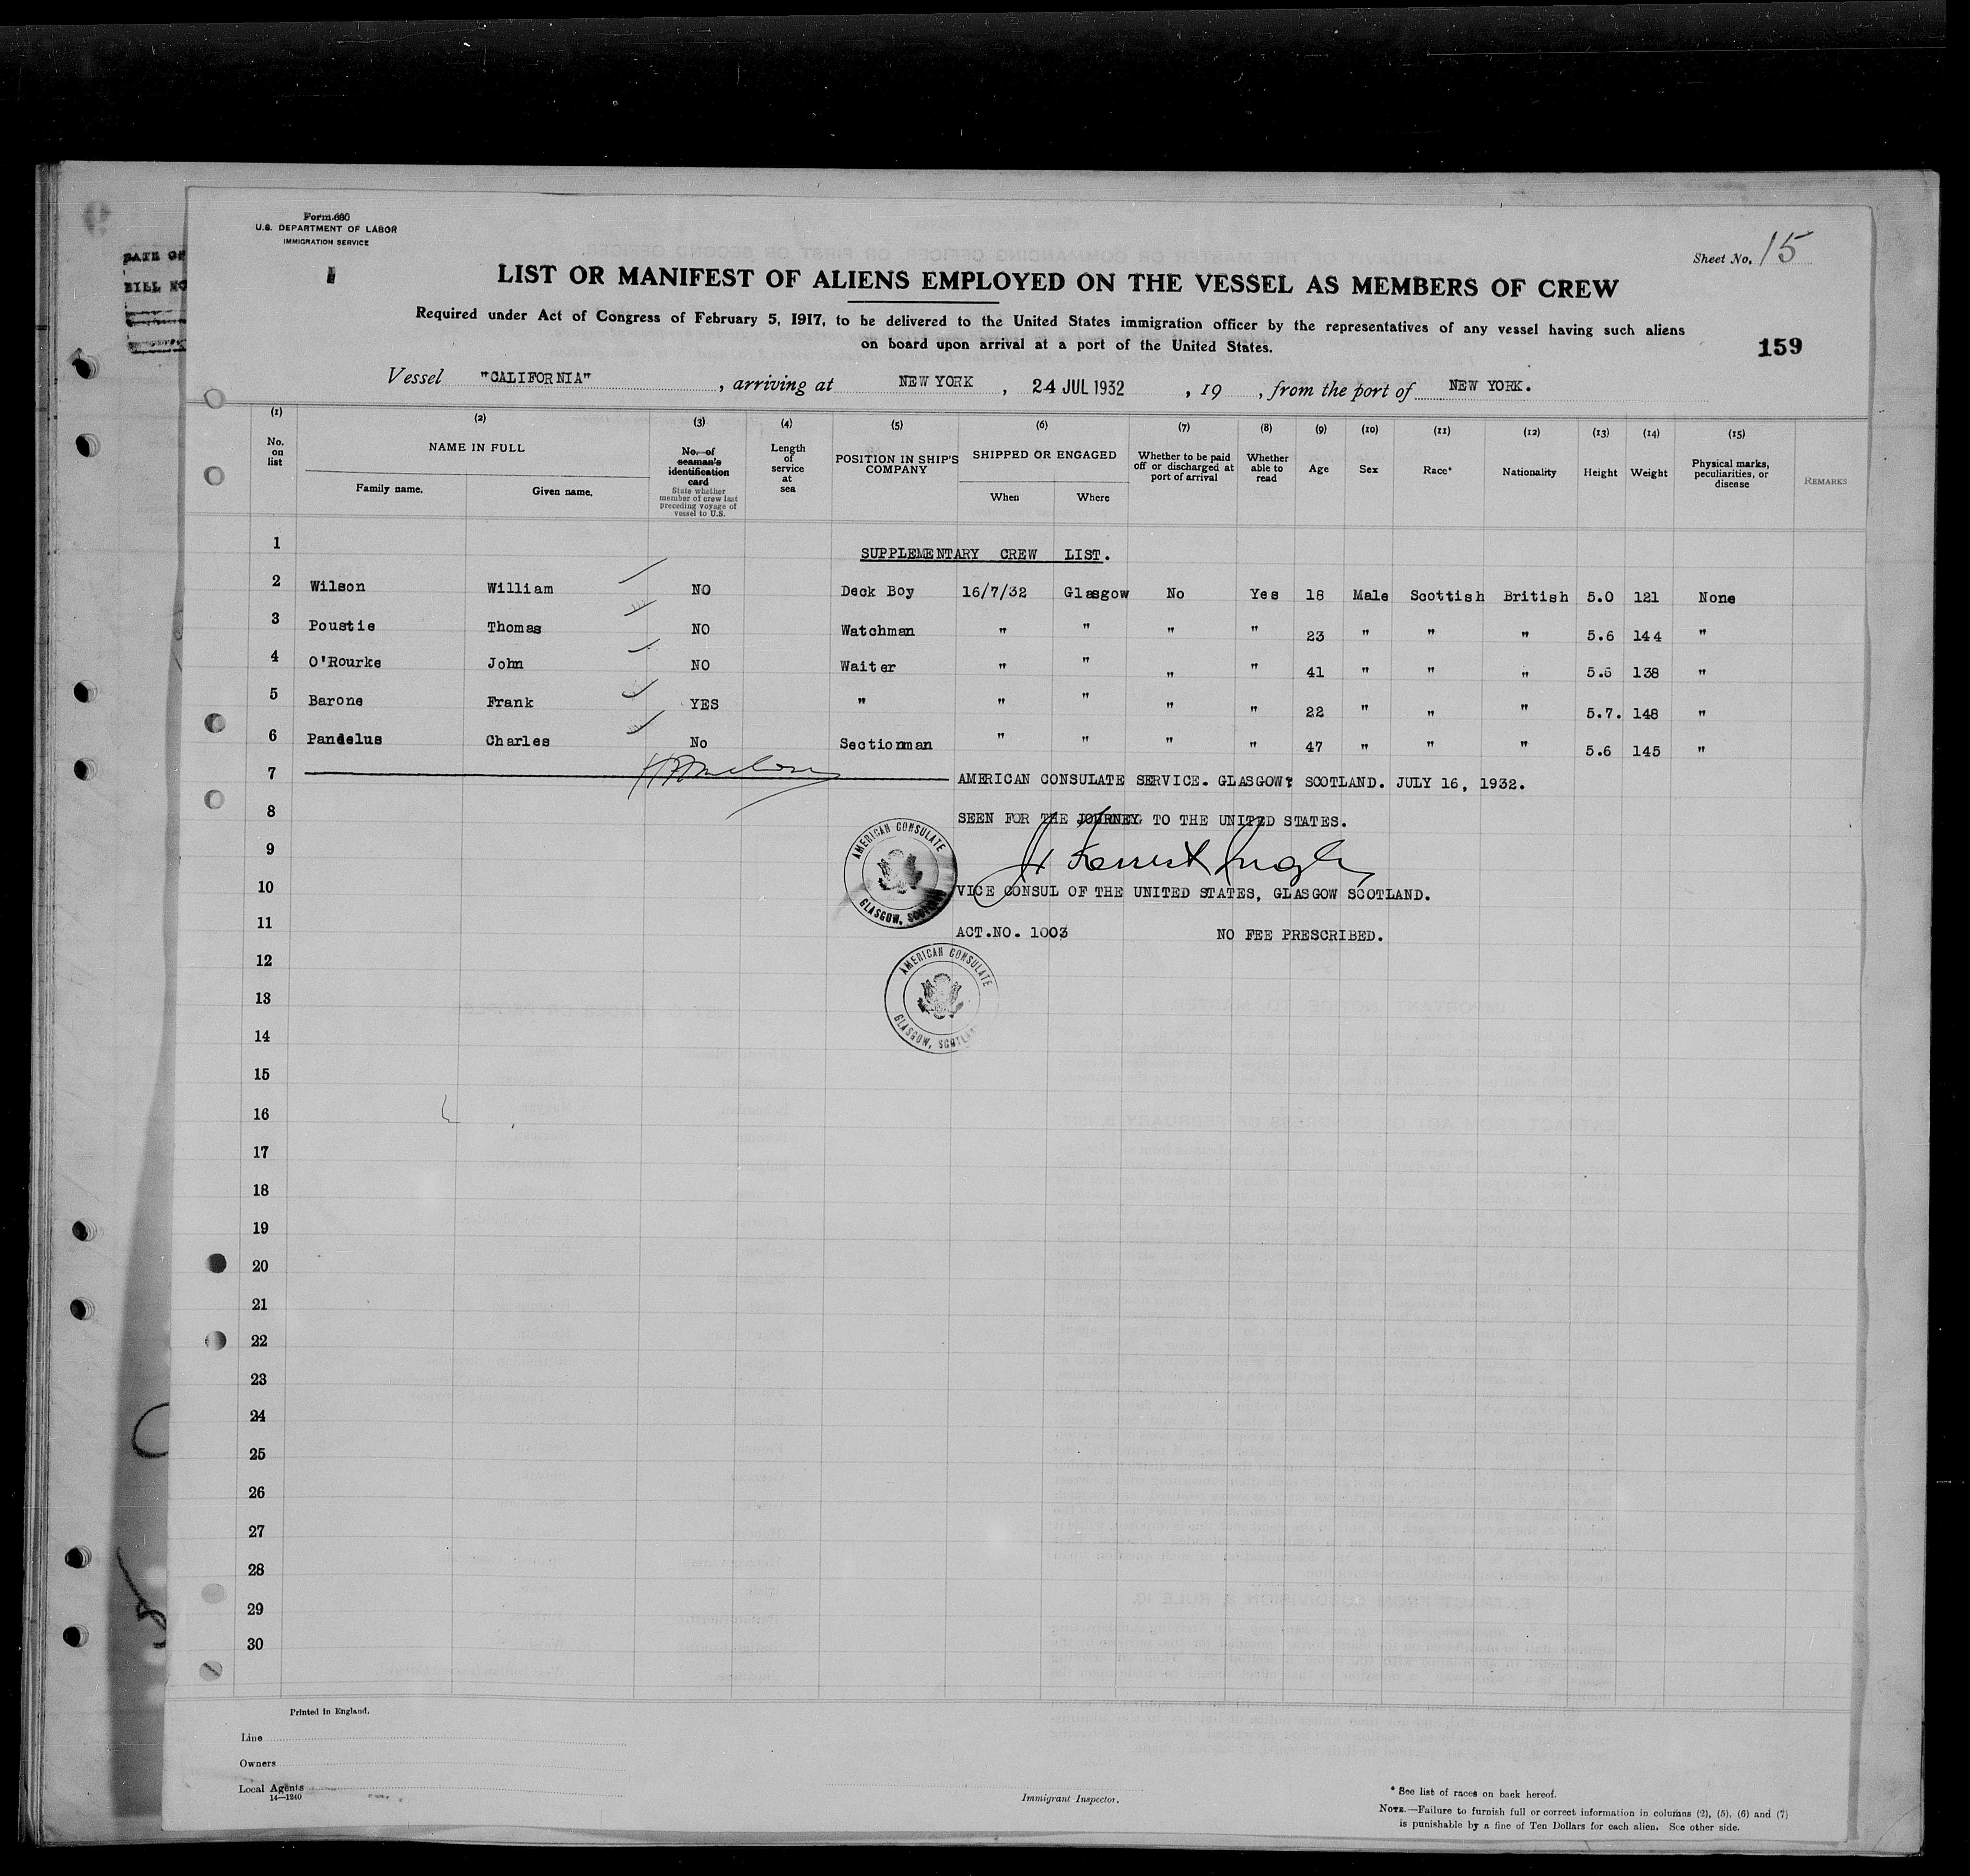 Form 680
U.S. DEPARTMENT OF LABOR
IMMIGRATION SERVICE
DATE OF
BILL NO
Sheet No. 15
LIST OR MANIFEST OF ALIENS EMPLOYED ON THE VESSEL AS MEMBERS OF CREW
Required under Act of Congress of February 5, 1917, to be delivered to the United States immigration officer by the representatives of any vessel having such aliens
on board upon arrival at a port of the United States.
159
Vessel "CALIFORNIA", arriving at NEW YORK, 24 JUL 1932, 19 , from the port of NEW YORK.
(1) (2) (3) (4) (5) (6) (7) (8) (9) (10) (11) (12) (13) (14) (15)
No. on list
NAME IN FULL
Family name. Given name.
No. of seaman's identification card
State whether member of crew last preceding voyage of vessel to U.S.
Length of service at sea
POSITION IN SHIP'S COMPANY
SHIPPED OR ENGAGED
When Where
Whether to be paid off or discharged at port of arrival
Whether able to read
Age
Sex
Race*
Nationality
Height
Weight
Physical marks, peculiarities, or disease
REMARKS
1 SUPPLEMENTARY CREW LIST.
2 Wilson William NO Deck Boy 16/7/32 Glasgow No Yes 18 Male Scottish British 5.0 121 None
3 Poustie Thomas NO Watchman " " " " 23 " " " 5.6 144 "
4 O'Rourke John NO Waiter " " " " 41 " " " 5.6 138 "
5 Barone Frank YES " " " " " 22 " " " 5.7. 148 "
6 Pandelus Charles No Sectionman " " " " 47 " " " 5.6 145 "
7 AMERICAN CONSULATE SERVICE. GLASGOW; SCOTLAND. JULY 16, 1932.
8 SEEN FOR THE JOURNEY TO THE UNITED STATES.
9
10 VICE CONSUL OF THE UNITED STATES, GLASGOW SCOTLAND.
11 ACT.NO. 1003 NO FEE PRESCRIBED.
AMERICAN CONSULATE
GLASGOW, SCOTLAND
12
AMERICAN CONSULATE
GLASGOW, SCOTLAND
13
14
15
16
17
18
19
20
21
22
23
24
25
26
27
28
29
30
Printed in England.
Line
Owners
Local Agents
14—1240
Immigrant Inspector.
* See list of races on back hereof.
NOTE.—Failure to furnish full or correct information in columns (2), (5), (6) and (7)
is punishable by a fine of Ten Dollars for each alien. See other side.